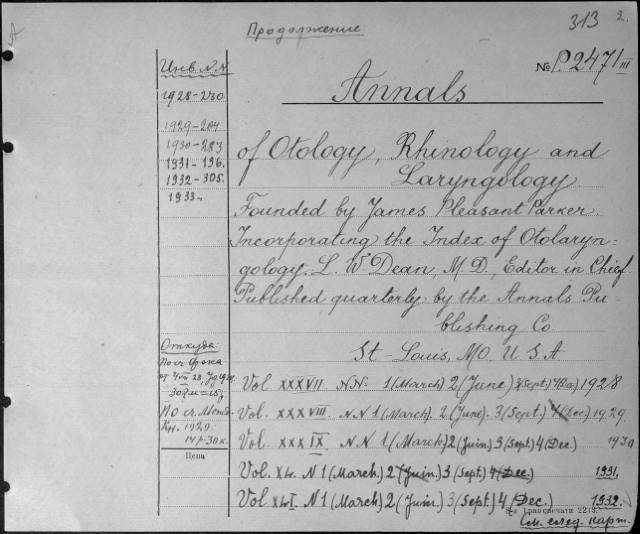 Продолжение
313
2.
№ P.2471 III
Инв. N.N
1928-230
1929-204
1930-283
1931-136.
1932-305.
1933-
Annals
of Otology, Rhinology and
Laryngology.
Founded by James Pleasant Parker.
Incorporating the Index of Otolaryn-
gology. L. W Dean, M.D., Editor in Chief.
Published quarterly by the Annals Pu-
blishing Co.
St-Louis, MO, U.S.A
Откуда
По сч.
По сч.
Кн. 1929.
Цена
Vol XXXVII. N.N: 1 (March) 2 (June) 3 (Sept) 4 (Dec) 1928
Vol. XXXVIII. N.N 1 (March). 2 (June). 3 (Sept) 4 (Dec) 1929.
Vol. XXXIX. N.N 1 (March) 2 (Juin) 3 (Sept) 4 (Dec.) 1930
Vol. XL. N 1 (March.) 2 (Juin.) 3 (Sept.) 4 (Dec.) 1931.
Vol XLI. N 1 (March) 2 (Juin.) 3 (Sept) 4 (Dec.) 1932.
См. след. карт.